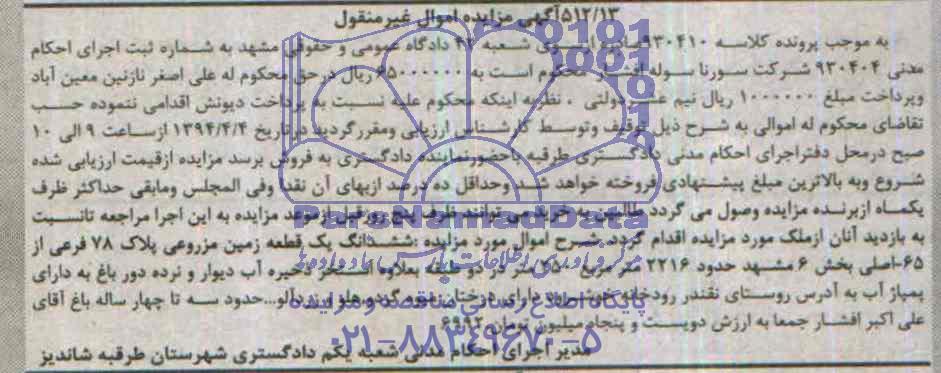 ۵۱۲/۱۳آگهی مزایده اموال غیرمنقول
به موجب پرونده کلاسه ۹۳۰۴۱۰ صادره از سوی شعبه ۴۲ دادگاه عمومی و حقوقی مشهد به شماره ثبت اجرای احکام
مدنی ۹۳۰۴۰۴ شرکت سورنا سوله افشار محکوم است به ۶۵۰۰۰۰۰۰ ریال درحق محکوم له علی اصغر نازنین معین آباد
وپرداخت مبلغ ۱۰۰۰۰۰۰ ریال نیم عشردولتی . نظربه اینکه محکوم علیه نسبت به پرداخت دیونش اقدامی ننموده حسب
تقاضای محکوم له اموالی به شرح ذیل توقیف وتوسط کارشناس ارزیابی ومقررگردید درتاریخ ۱۳۹۴/۴/۴ ازساعت ۹ الی ۱۰
صبح درمحل دفتراجرای احکام مدنی دادگستری طرقبه باحضورنماینده دادگستری به فروش برسد مزایده ازقیمت ارزیابی شده
شروع وبه بالاترین مبلغ پیشنهادی فروخته خواهد شد وحداقل ده درصد ازبهای آن نقدا وفی المجلس ومابقی حداکثر ظرف
یکماه ازبرنده مزایده وصول می گردد طالبین به خرید می توانند ظرف پنج روزقبل ازموعد مزایده به این اجرا مراجعه تانسبت
به بازدید آنان ازملک مورد مزایده اقدام گردد .شرح اموال مورد مزایده :ششدانگ یک قطعه زمین مزروعی پلاک ۷۸ فرعی از
۶۵-اصلی بخش ۶ مشهد حدود ۲۲۱۶ متر مربع متر در دو طبقه بعلاوه استخر ذخیره آب دیوار و نرده دور باغ به دارای
پمپاژ آب به آدرس روستای نقندر رودخانه دارای درختان میوه گردو هلو زردآلو...حدود سه تا چهار ساله باغ آقای
علی اکبر افشار جمعا به ارزش دویست و پنجاه میلیون تومان
مدیر اجرای احکام مدنی شعبه یکم دادگستری شهرستان طرقبه شاندیز
ParsNamadData
پایگاه اطلاع رسانی مناقصه و مزایده
۰۲۱-۸۸۳۴۹۶۷۰-۵